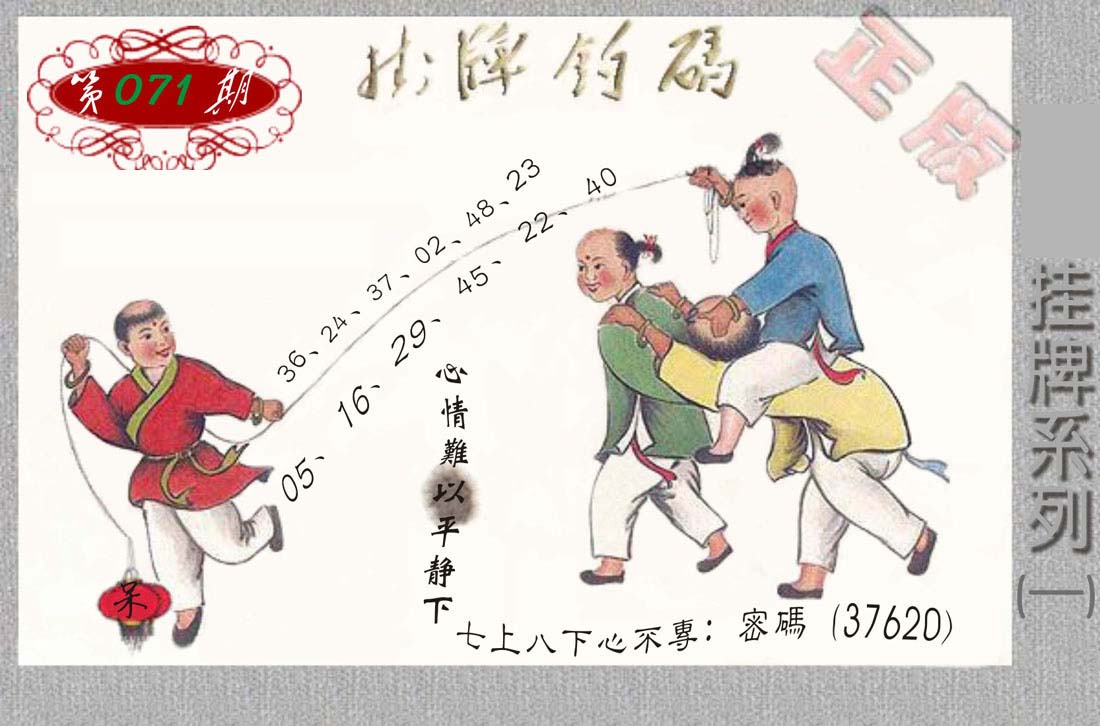 第071期
挂牌钓碼
正版
36、24、37、02、48、23
05、16、29、45、22、40
心情難以平静下
呆
七上八下心不專：密碼(37620)
挂牌系列(一)